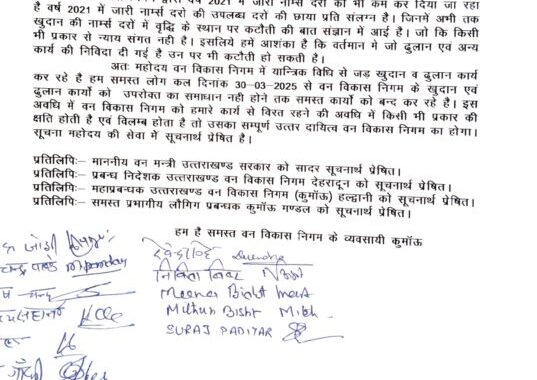 है वर्ष 2021 में जारी नार्म्स दरों की उपलब्ध दरों की छाया प्रति संलग्न है। जिनमें अभी तक
खुदान की नार्म्स दरों में वृद्धि के स्थान पर कटौती की बात संज्ञान में आई है। जो कि किसी
भी प्रकार से न्याय संगत नही है। इसलिये हमें आशंका है कि वर्तमान मे जो ढुलान एवं अन्य
कार्य की निविदा दी गई है उन पर भी कटौती हो सकती है।
अतः महोदय वन विकास निगम में यान्त्रिक विधि से जड़ खुदान व ढुलान कार्य
कर रहे है हम समस्त लोग कल दिनांक 30-03-2025 से वन विकास निगम के खुदान एवं
ढुलान कार्यो को उपरोक्त का समाधान नही होने तक समस्त कार्यो को बन्द कर रहे है। इस
अवधि में वन विकास निगम को हमारे कार्य से विरत रहने की अवधि में किसी भी प्रकार की
क्षति होती है एवं विलम्ब होता है तो उसका सम्पूर्ण उत्तर दायित्व वन विकास निगम का होगा।
सूचना महोदय की सेवा में सूचनार्थ प्रेषित है।
प्रतिलिपिः– माननीय वन मन्त्री उत्तराखण्ड सरकार को सादर सूचनार्थ प्रेषित।
प्रतिलिपिः– प्रबन्ध निदेशक उत्तराखण्ड वन विकास निगम देहरादून को सूचनार्थ प्रेषित।
प्रतिलिपिः– महाप्रबन्धक उत्तराखण्ड वन विकास निगम (कुमाॅऊ) हल्द्वानी को सूचनार्थ प्रेषित।
प्रतिलिपिः– समस्त प्रभागीय लौगिग प्रबन्धक कुमाॅऊ मण्डल को सूचनार्थ प्रेषित।
हम है समस्त वन विकास निगम के व्यवसायी कुमाॅऊ
जोशी
Meena Bisht
Mithun Bisht
SURAJ PADIYAR